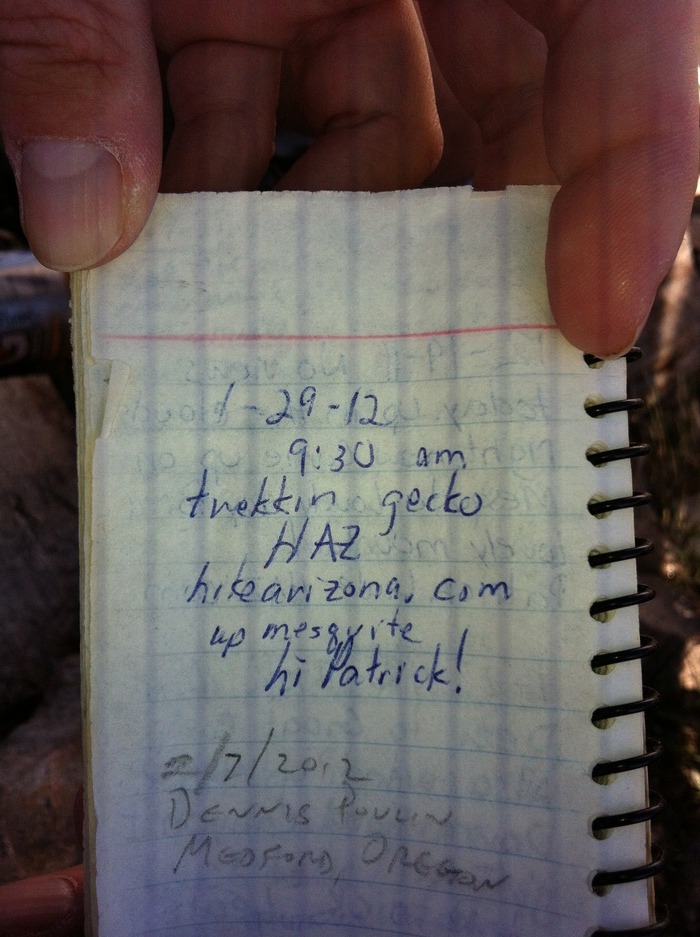 1-29-12
9:30 am
trekkin gecko
HAZ
hikearizona.com
up mesquite
hi Patrick!
2/7/2012
DENNIS POULIN
MEDFORD, OREGON